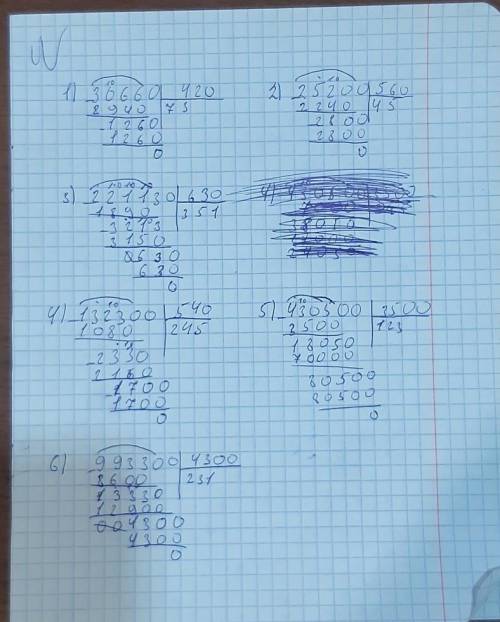 1) 30660 420
2940 73
1260
1260
0
2) 25200 560
2240 45
2800
2800
0
3) 221130 630
1890 351
3213
3150
0630
630
0
4) 132300 540
1080 245
2330
2160
1700
1700
0
5) 430500 3500
3500 123
18050
70000
80500
80500
0
6) 993300 4300
8600 231
13330
12900
004300
4300
0